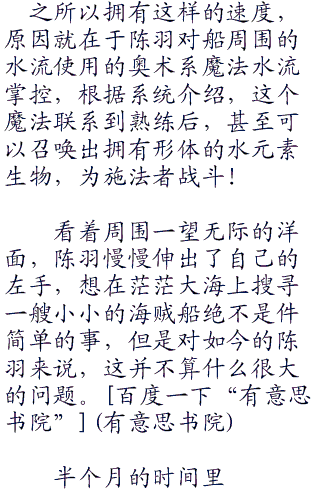 之所以拥有这样的速度，
原因就在于陈羽对船周围的
水流使用的奥术系魔法水流
掌控，根据系统介绍，这个
魔法联系到熟练后，甚至可
以召唤出拥有形体的水元素
生物，为施法者战斗！
看着周围一望无际的洋
面，陈羽慢慢伸出了自己的
左手，想在茫茫大海上搜寻
一艘小小的海贼船绝不是件
简单的事，但是对如今的陈
羽来说，这并不算什么很大
的问题。[百度一下“有意思
书院”] (有意思书院)
半个月的时间里